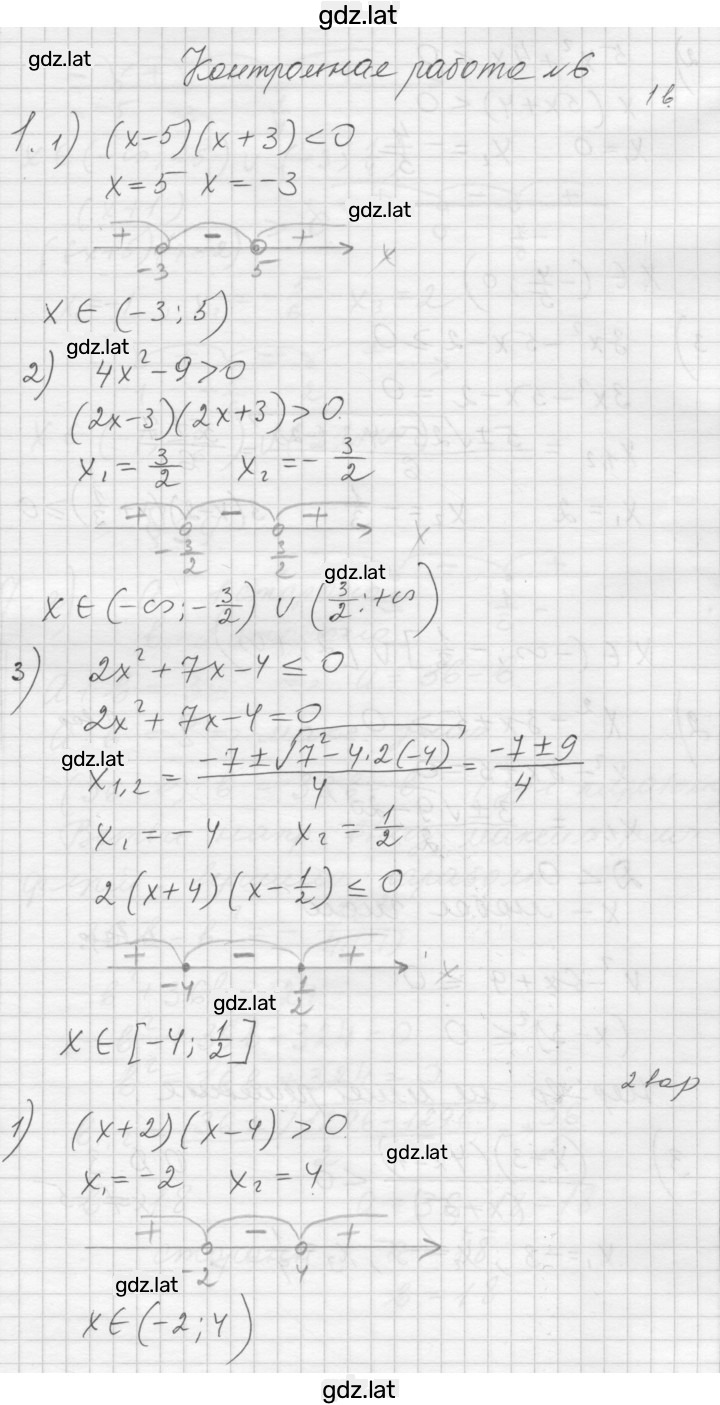 gdz.lat
gdz.lat
Контрольная работа №6
1 в.
1. 1) (x-5)(x+3)<0
x=5 x=-3
gdz.lat
+ - +
-3 5 x
x ∈ (-3; 5)
gdz.lat
2) 4x²-9>0
(2x-3)(2x+3)>0
x₁=3/2 x₂=-3/2
+ - +
-3/2 3/2 x
gdz.lat
x ∈ (-∞; -3/2) ∪ (3/2; +∞)
3) 2x²+7x-4≤0
2x²+7x-4=0
gdz.lat
x₁,₂ = (-7±√(7²-4·2(-4)))/4 = (-7±9)/4
x₁=-4 x₂=1/2
2(x+4)(x-1/2)≤0
+ - +
-4 1/2 x
gdz.lat
x ∈ [-4; 1/2]
2 вар
1) (x+2)(x-4)>0
gdz.lat
x₁=-2 x₂=4
+ - +
-2 4
gdz.lat
x∈(-2; 4)
gdz.lat